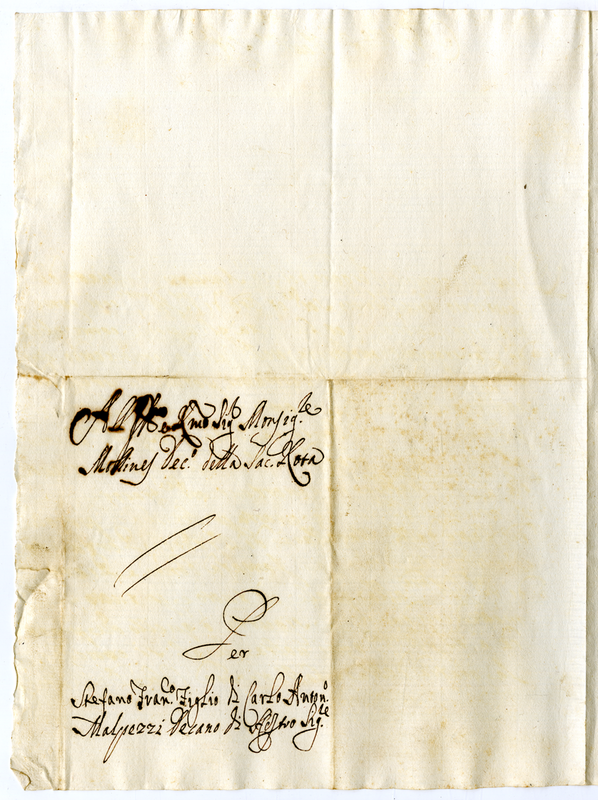 All' Ill.mo e R.mo Sig.r Monsig.re
Molines Dec.o della Sac. Rota
Per
Stefano Fran.co Figlio di Carlo Anton.o
Malpezzi Decano di N̄ostro Sig.re